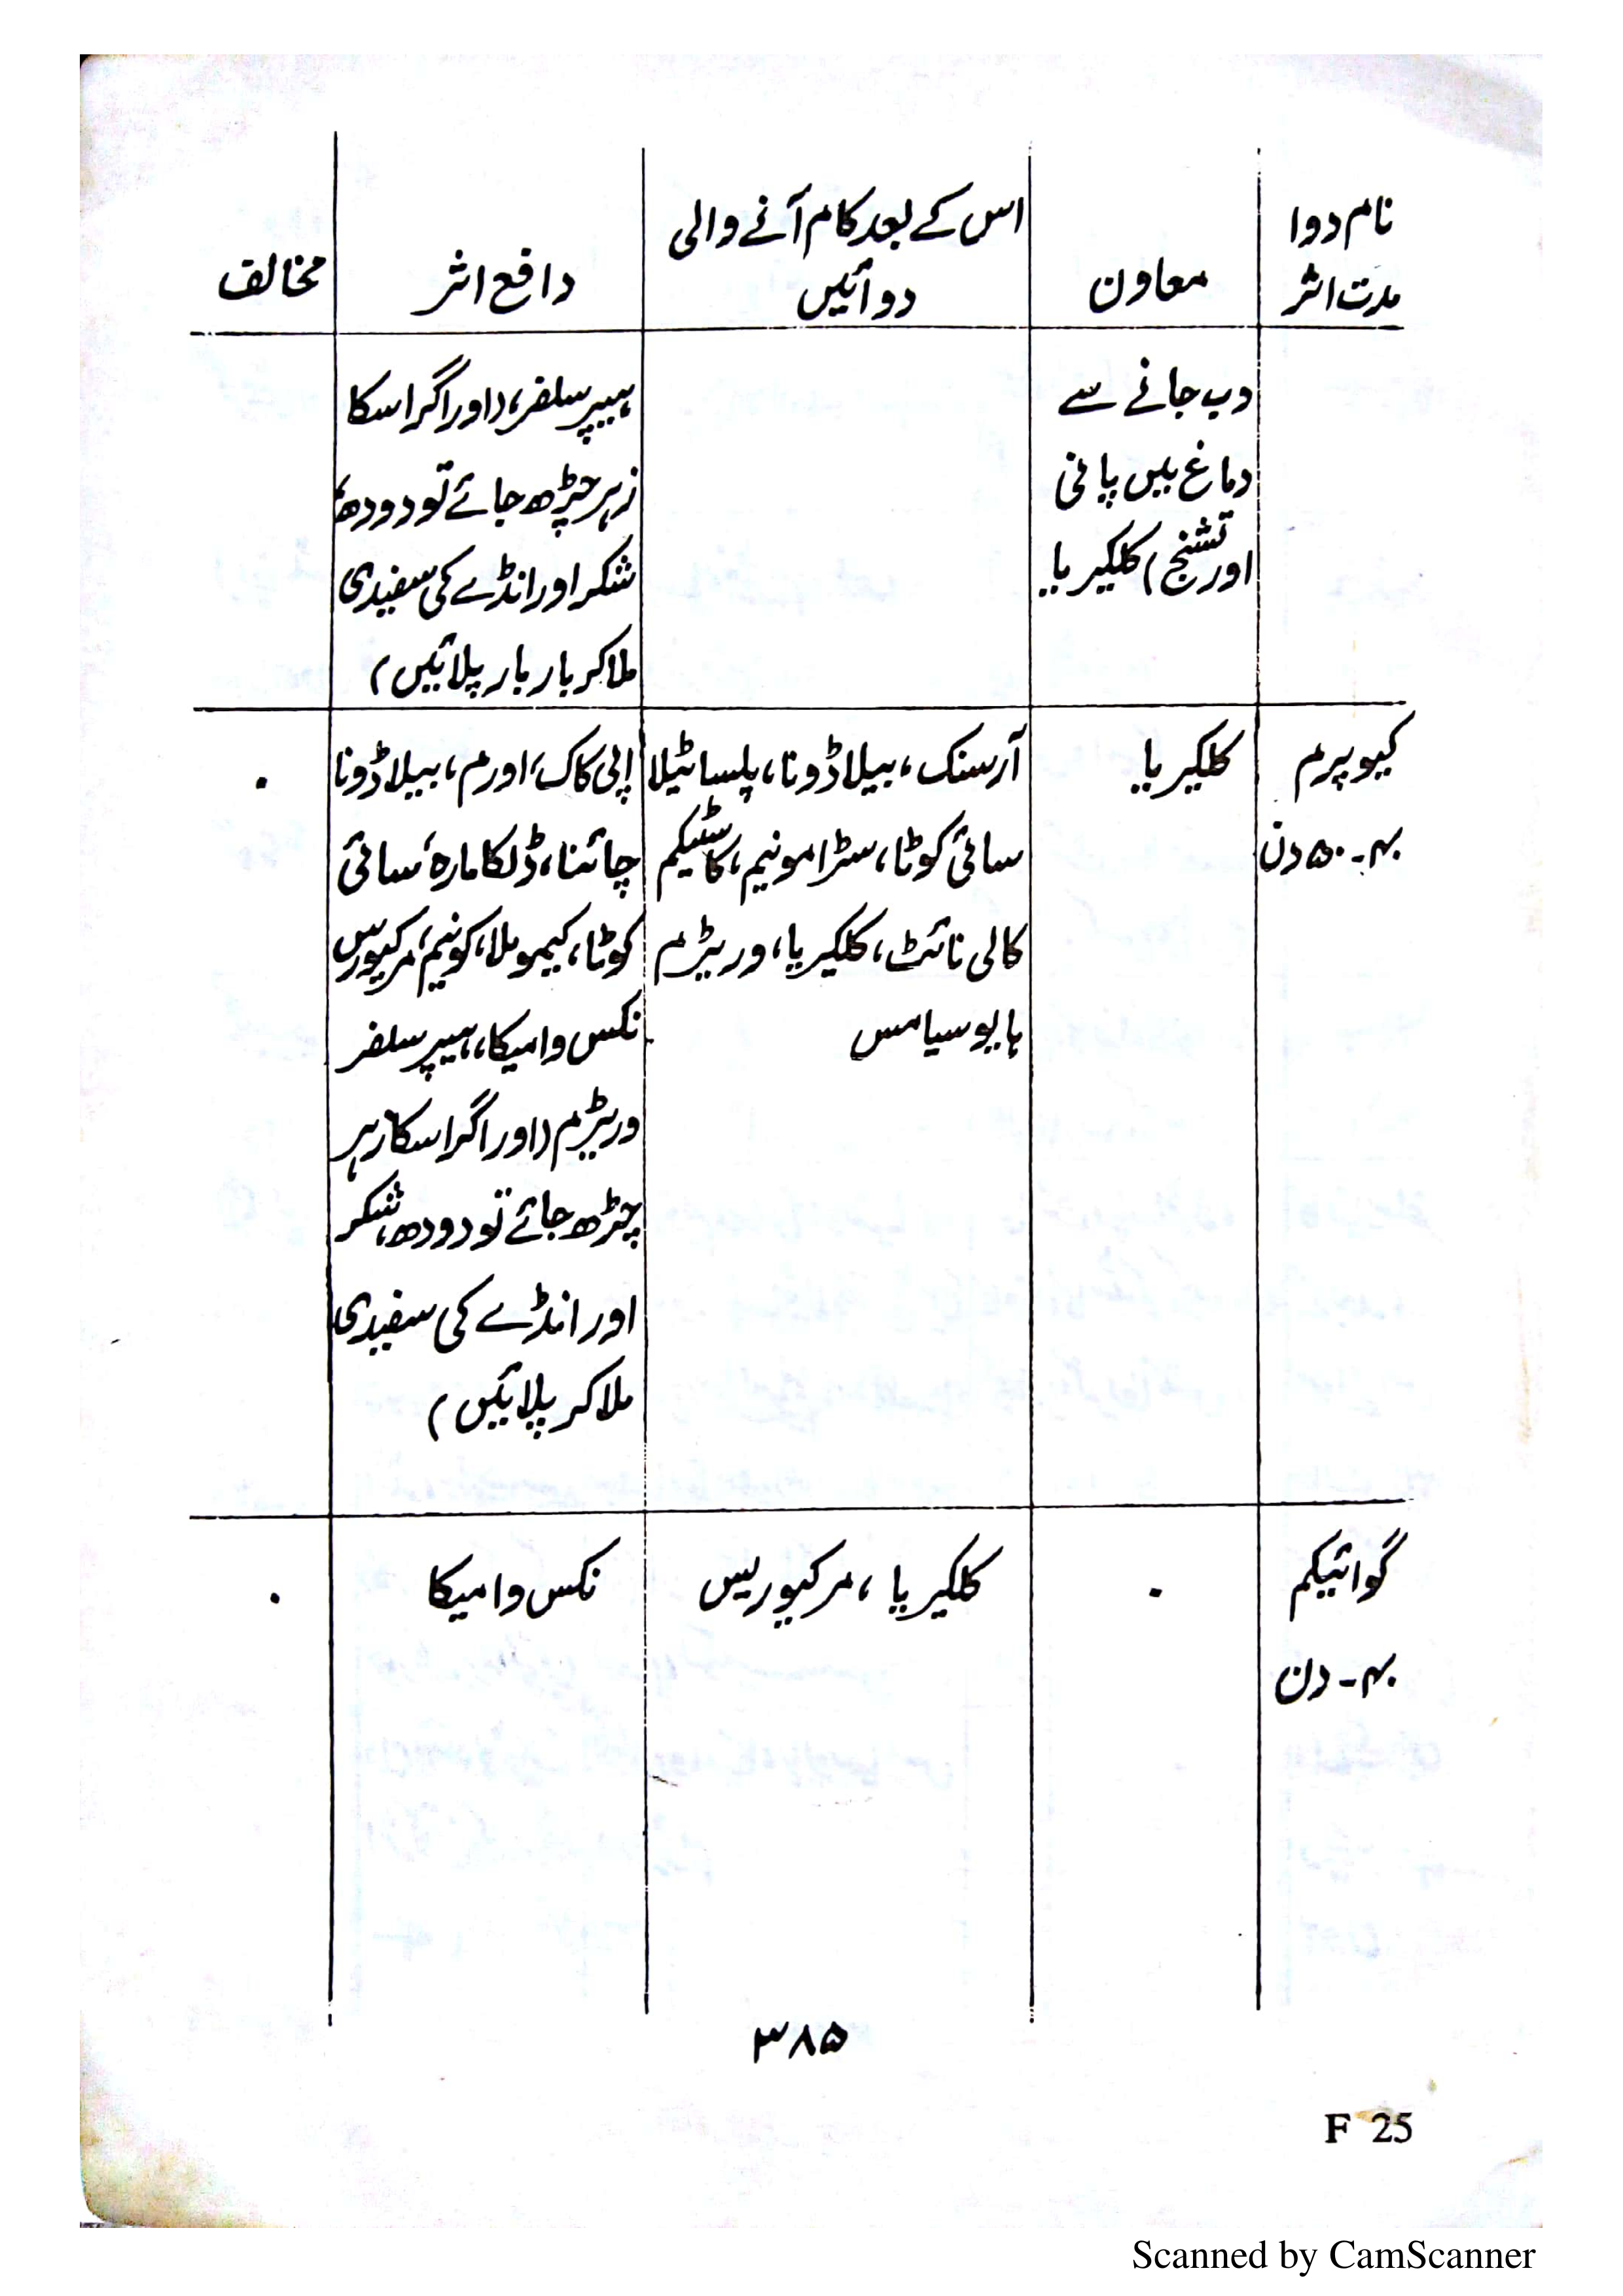 نام دوا
مدت اثر
معاون
اس کے بعد کام آنے والی
دوائیں
دافع اثر
مخالف
دب جانے سے
دماغ میں پانی
اور تشنج) کلکیریا
ہیپر سلفر، (اور اگر اسکا
زہر چڑھ جائے تو دودھ،
شکر اور انڈے کی سفیدی
ملا کر بار بار پلائیں)
کیوپرم
۴۰ - ۵۰ دن
کلکیریا
آرسنک، بیلاڈونا، پلساٹیلا
سائی کوٹا، سٹرامونیم، کاسٹیکم
کالی نائٹ، کلکیریا، وریٹرم
ہایوسیامس
اپی کاک، اورم، بیلاڈونا
چائنا، ڈلکامارہ، سائی
کوٹا، کیموملا، کونیم، مرکیورس
نکس وامیکا، ہیپر سلفر
وریٹرم (اور اگر اسکا زہر
چڑھ جائے تو دودھ، شکر
اور انڈے کی سفیدی
ملا کر پلائیں)
۰
گوائیکم
۴۰ - دن
۰
کلکیریا، مرکیوریس
نکس وامیکا
۰
۳۸۵
F 25
Scanned by CamScanner